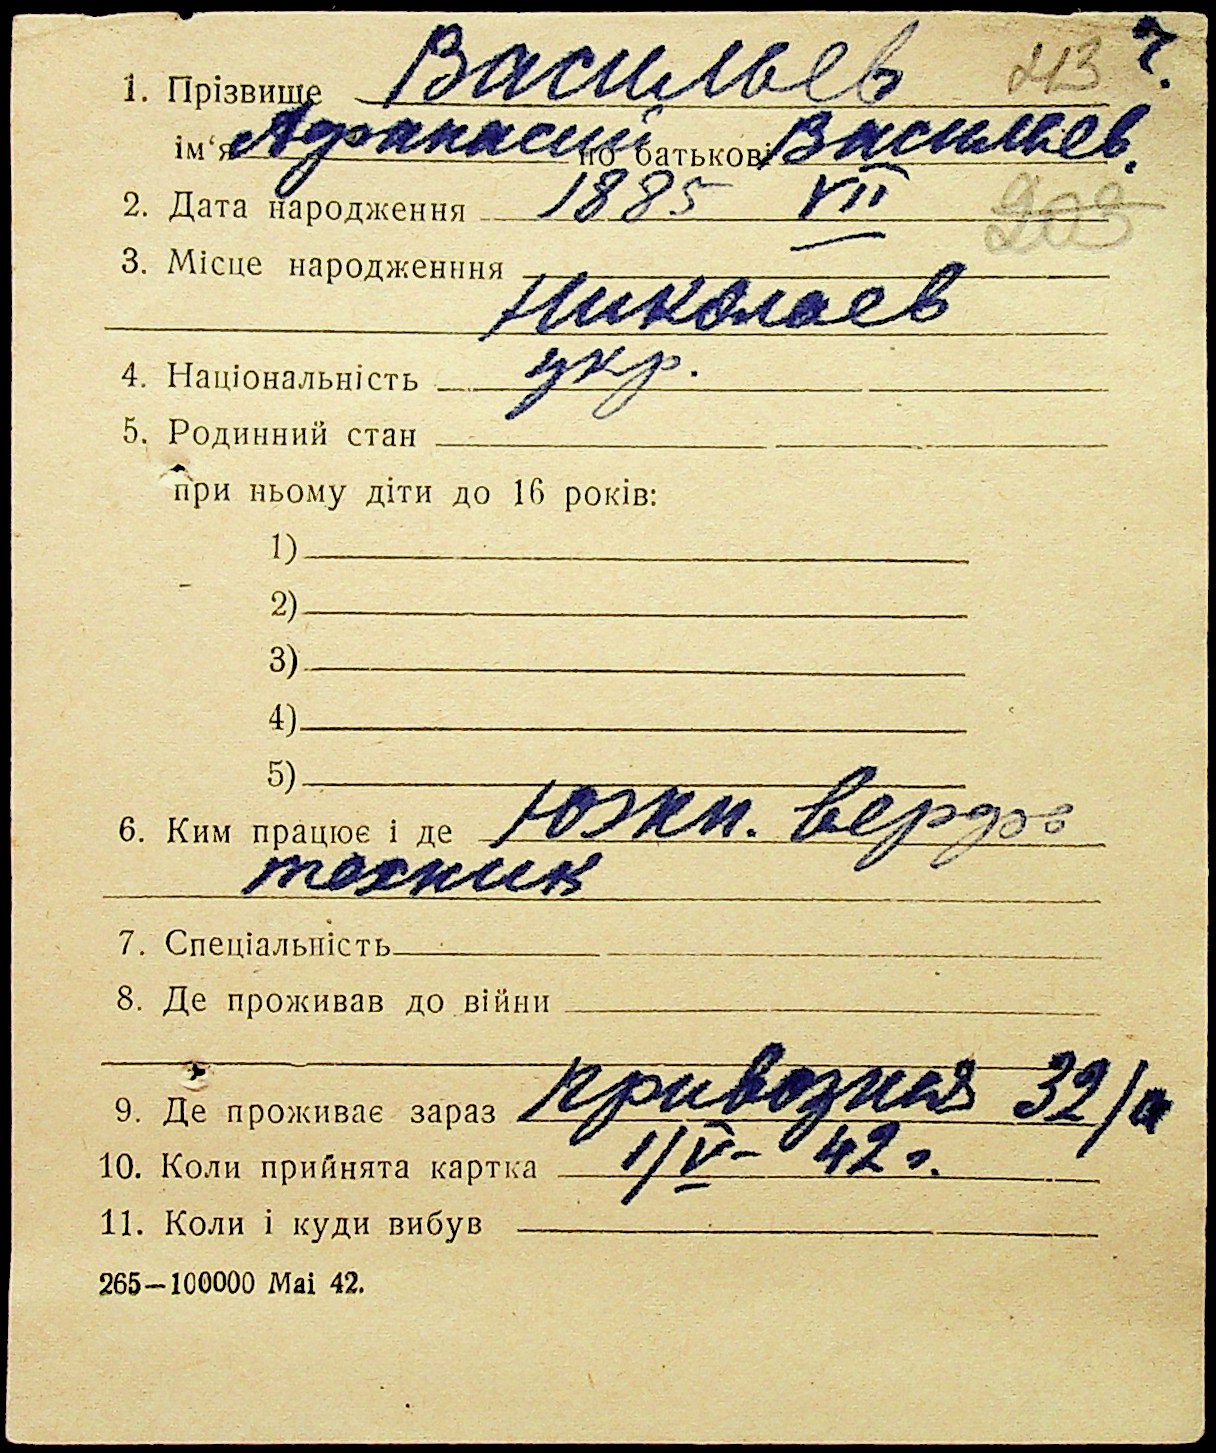 1. Прізвище Васильев 213 7.
ім'я Афанасий по батькові Васильев.
2. Дата народження 1885 VII 203
3. Місце народженння
Николаев
4. Національність укр.
5. Родинний стан
при ньому діти до 16 років:
1)
2)
3)
4)
5)
6. Ким працює і де Южн. верфь
техник
7. Спеціальність
8. Де проживав до війни
9. Де проживає зараз Привозная 32/а
10. Коли прийнята картка 1/V- 42 г.
11. Коли і куди вибув
265—100000 Mai 42.